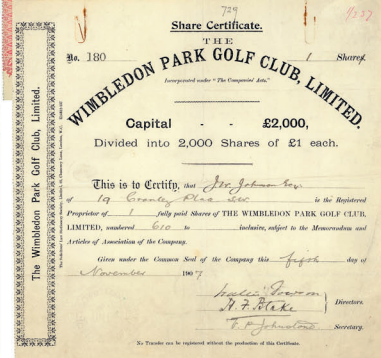 729
4/337
Share Certificate.
No. 180
1 Shares.
THE
WIMBLEDON PARK GOLF CLUB, LIMITED.
Incorporated under "The Companies Acts."
Capital - - £2,000,
Divided into 2,000 Shares of £1 each.
This is to Certify, that Jas. Johnson Esq
of 19 Cranley Place SW is the Registered
Proprietor of 1 fully paid Shares of THE WIMBLEDON PARK GOLF CLUB,
LIMITED, numbered 610 to inclusive, subject to the Memorandum and
Articles of Association of the Company.
Given under the Common Seal of the Company this fifth day of
November 1907
H. F. Blake
Directors.
Johnstone Secretary.
No Transfer can be registered without the production of this Certificate.
The Wimbledon Park Golf Club, Limited.